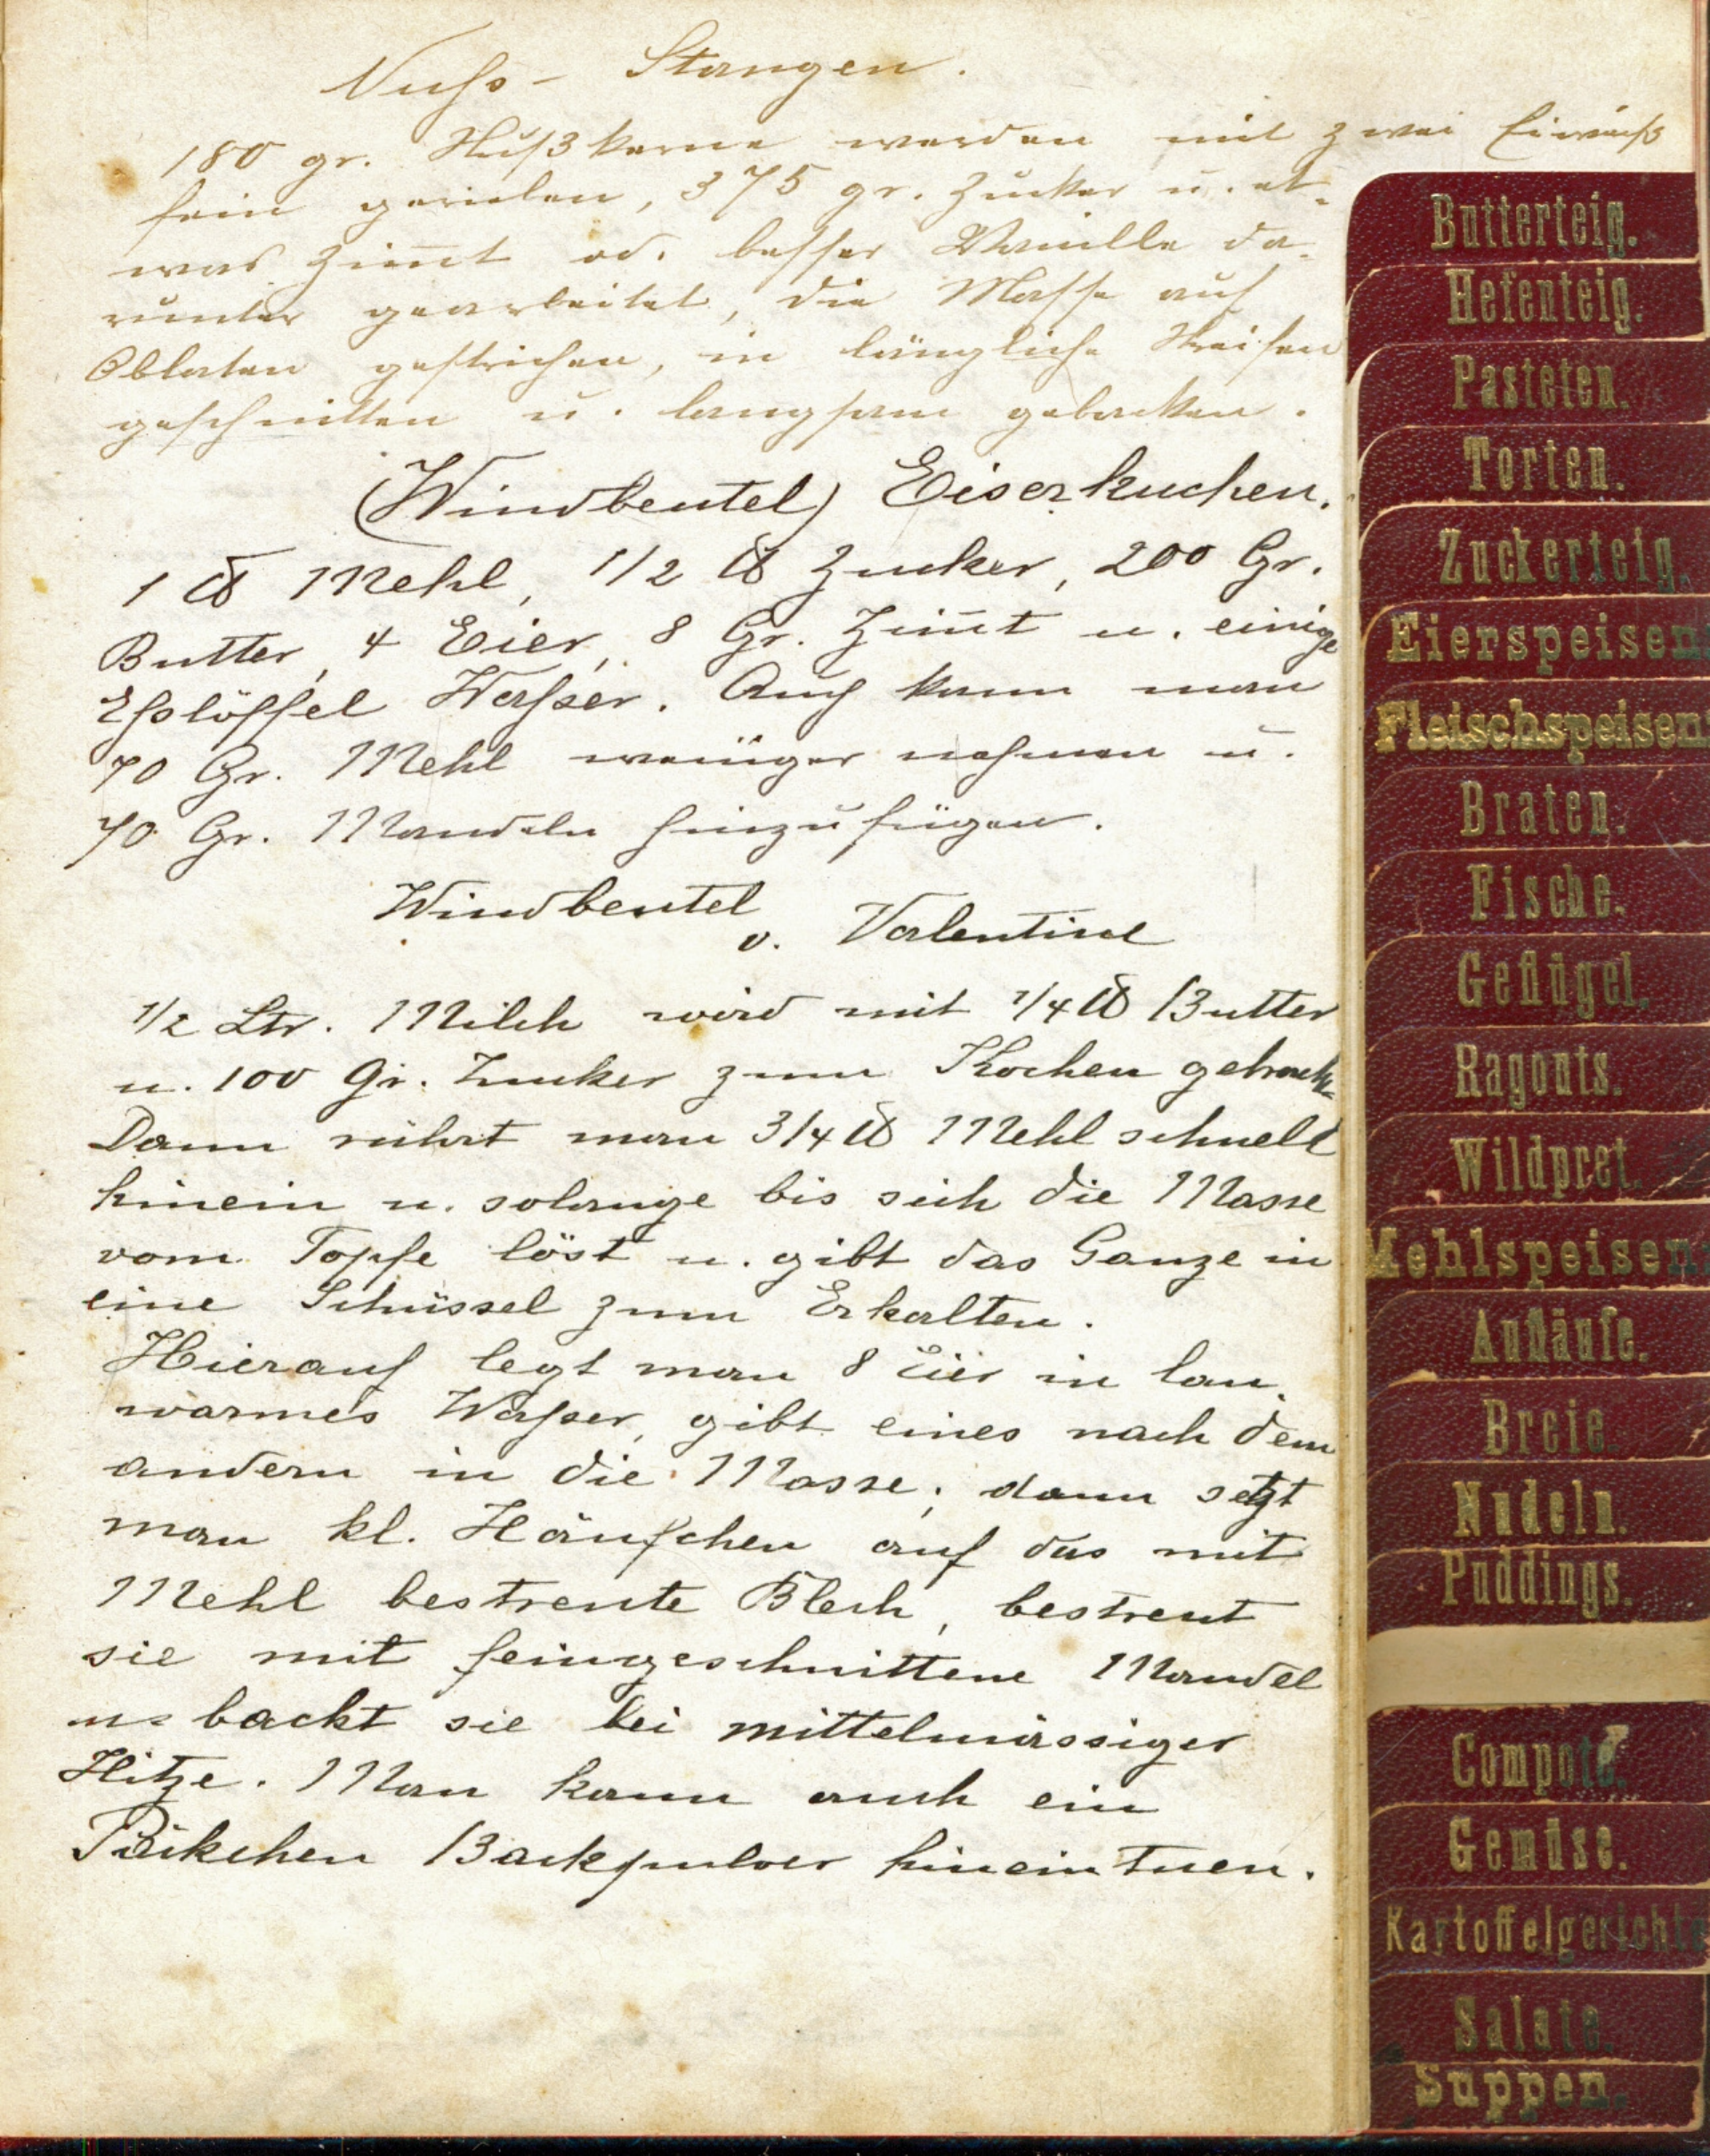 Nuss- Stangen.
180 gr. Nußkerne werden mit zwei Eiweiß
fein gerieben, 375 gr. Zucker u. et-
was Zim̄t od. besser Vanille da-
runter gearbeitet, die Masse auf
Oblaten gestrichen, in längliche Streifen
geschnitten u. langsam gebacken.
(Windbeutel) Eiserkuchen.
1 ℔ Mehl, 1/2 ℔ Zucker, 200 Gr.
Butter, 4 Eier, 8 Gr. Zim̄t u. einige
Esslöffel Wasser. Auch kann man
70 Gr. Mehl weniger nehmen u.
70 Gr. Mandeln hinzufügen.
Windbeutel
v. Valentine
1/2 Ltr. Milch wird mit 1/4 ℔ Butter
u. 100 Gr. Zucker zum Kochen gebracht.
Dann rührt man 3/4 ℔ Mehl schnell
hinein u. solange bis sich die Masse
vom Topfe löst u. gibt das Ganze in
eine Schüssel zum Erkalten.
Hierauf legt man 8 Eier in lau-
warmes Wasser, gibt eines nach dem
andern in die Masse; dann setzt
man kl. Häufchen auf das mit
Mehl bestreute Blech, bestreut
sie mit feingeschnittene Mandel
u. backt sie bei mittelmässiger
Hitze. Man kann auch ein
Päckchen Backpulver hineintuen.
Butterteig.
Hefenteig.
Pasteten.
Torten.
Zuckerteig.
Eierspeisen
Fleischspeisen
Braten.
Fische.
Geflügel.
Ragouts.
Wildpret.
Mehlspeisen
Aufläufe.
Breie.
Nudeln.
Puddings.
Compote.
Gemüse.
Kartoffelgerichte
Salate.
Suppen.